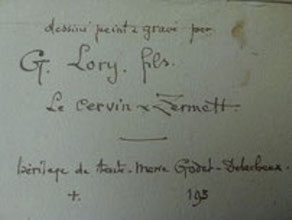 dessiné peint & gravé par
G. Lory. fils.
Le Cervin & Zermatt.
héritage de tante. Marie Godet-
+. 193